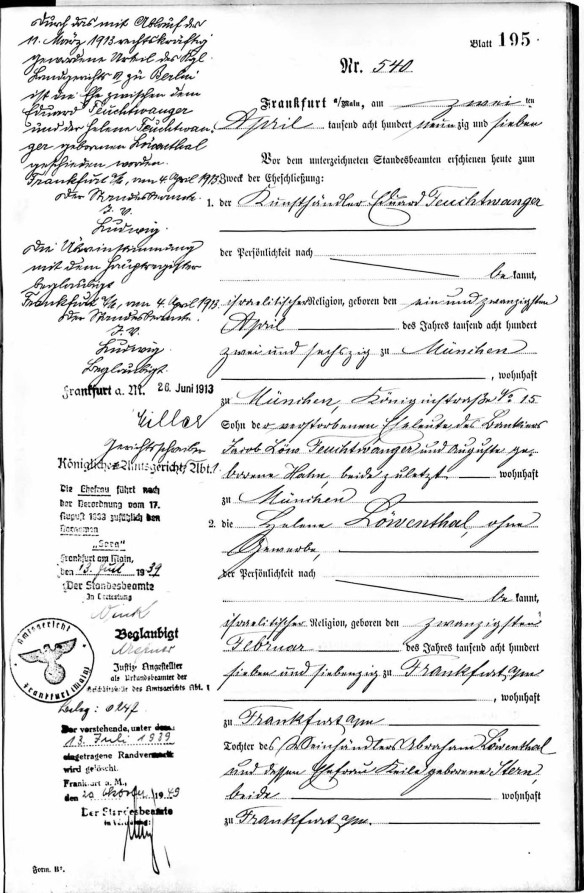 Blatt 195
Nr. 540.
Frankfurt a/Main, am zwei ten
April tausend acht hundert neunzig und sieben
Vor dem unterzeichneten Standesbeamten erschienen heute zum
Zweck der Eheschließung:
1. der Kunsthändler Eduard Feuchtwanger
der Persönlichkeit nach
be kannt,
israelitischer Religion, geboren den ein und zwanzigsten
April des Jahres tausend acht hundert
zwei und sechszig zu München
, wohnhaft
zu München, Königinstraße No 15
Sohn der verstorbenen Eheleute des Bankiers
Jacob Löw Feuchtwanger und Auguste ge-
borene Hahn, beide zuletzt wohnhaft
zu München
2. die Helene Löwenthal, ohne
Gewerbe,
der Persönlichkeit nach
be kannt,
israelitischer Religion, geboren den zwanzigsten
Februar des Jahres tausend acht hundert
sieben und siebenzig zu Frankfurt a/m
, wohnhaft
zu Frankfurt a/m
Tochter des Weinhändlers Abraham Löwenthal
und dessen Ehefrau Keile geborene Stern,
beide wohnhaft
zu Frankfurt a/m.
Durch das mit Ablauf des
11. März 1913 rechtskräftig
gewordene Urteil des Kgl.
Landgerichts II zu Berlin
ist die Ehe zwischen dem
Eduard Feuchtwanger
und der Helene Feuchtwan-
ger geborenen Löwenthal
geschieden worden.
Frankfurt a/M, am 4. April 1913
Der Standesbeamte
I. V.
Ludwig.
Die Übereinstimmung
mit dem Hauptregister
beglaubigt
Frankfurt a/M, am 4. April 1913.
Der Standesbeamte.
I. V.
Ludwig.
Beglaubigt
Frankfurt a. M. 26. Juni 1913
Gerichtsschreiber
Königliches Amtsgericht Abt.
Die Ehefrau führt nach
der Verordnung vom 17.
August 1938 zusätzlich den
Vornamen
"Sara"
Frankfurt am Main,
den 13. Juli 1939
Der Standesbeamte
In Vertretung
Beglaubigt
Justiz Angestellter
als Urkundsbeamter der
Geschäftsstelle des Amtsgerichts Abt. 1
Amtsgericht
Frankfurt (Main)
Der vorstehende, unter dem:
13. Juli 1939
eingetragene Randvermerk
wird gelöscht.
Frankfurt a. M.,
den 20 Oktober 1949
Der Standesbeamte
in Vertretung:
Form. B.